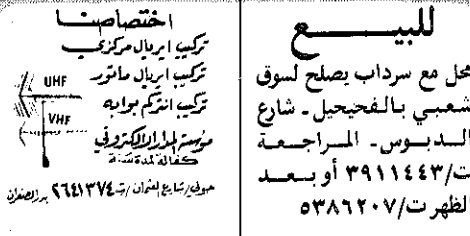 للبيـــع
محل مع سرداب يصلح لسوق
شعبي بـالفحيحيل ـ شارع
الـدبـوس . المـراجـعـة
ت/٣٩١١٤٤٣ أو بـعـد
الظهر ت/٥٣٨٦٢٠٧
اختصاصنـا
تركيب ايريال مركزي
تركيب ايريال ماتور
تركيب انتركم بوابه
مؤسسة المدار الالكتروني
كفالة لمدة سنة
حولي/شارع العثمان/ت ٢٦٤١٣٧٤
UHF
VHF